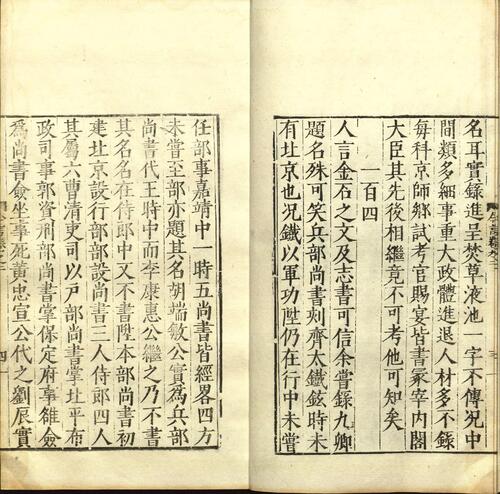 名耳實錄進呈焚草液池一字不傳況中
間類多細事重大政體進退人材多不錄
每科京師鄉試考官賜宴皆書冢宰內閣
大臣其先後相繼竟不可考他可知矣
一百四
人言金石之文及志書可信余嘗錄九卿
題名殊可笑兵部尚書刻齊太鐵鉉時未
有北京也況鐵以軍功陞仍在行中未嘗
任部事嘉靖中一時五尚書皆經畧四方
未嘗至部亦題其名胡端敏公實爲兵部
尚書代王時中而李康惠公繼之乃不書
其名名在侍郎中又不書陞本部尚書初
建北京設行部部設尚書三人侍郎四人
其屬六曹清吏司以戶部尚書掌北平布
政司事郭資刑部尚書掌保定府事雒僉
爲尚書僉坐事死黃忠宣公代之劉辰實